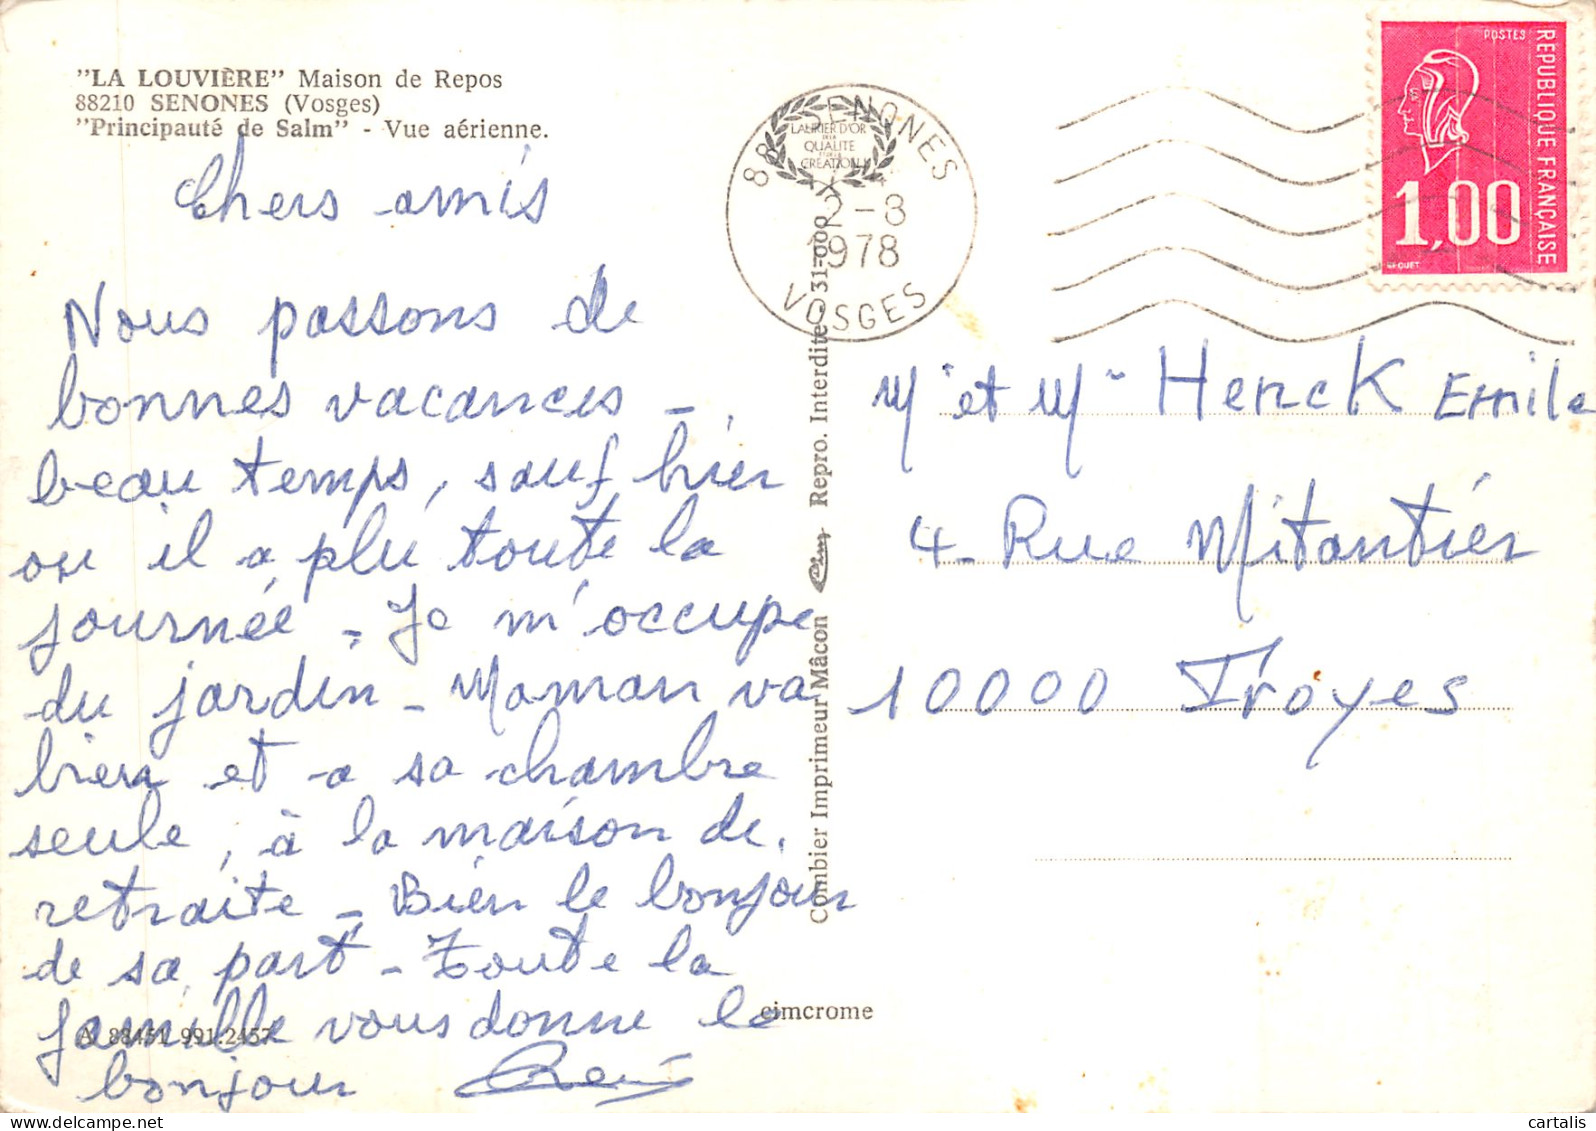 "LA LOUVIÈRE" Maison de Repos
88210 SENONES (Vosges)
"Principauté de Salm" - Vue aérienne.
Chers amis
Nous passons de
bonnes vacances -
beau temps, sauf hier
ou il a plu toute la
journée - Je m'occupe
du jardin - Maman va
bien et a sa chambre
seule, à la maison de
retraite - Bien le bonjour
de sa part - Toute la
famille vous donne le
bonjour René
A. 88451 991.2457
cimcrome
Combier Imprimeur Mâcon Cim Repro. Interdite - 31-000
LAURIER D'OR
DE LA
QUALITE
ET DE LA
CREATION
88 SENONES
2-8
1978
VOSGES
POSTES
REPUBLIQUE FRANÇAISE
1,00
BEQUET
Mr et Mme Henck Emile
4 - Rue Mitantier
10000 Troyes
cartalis
delcampe.net